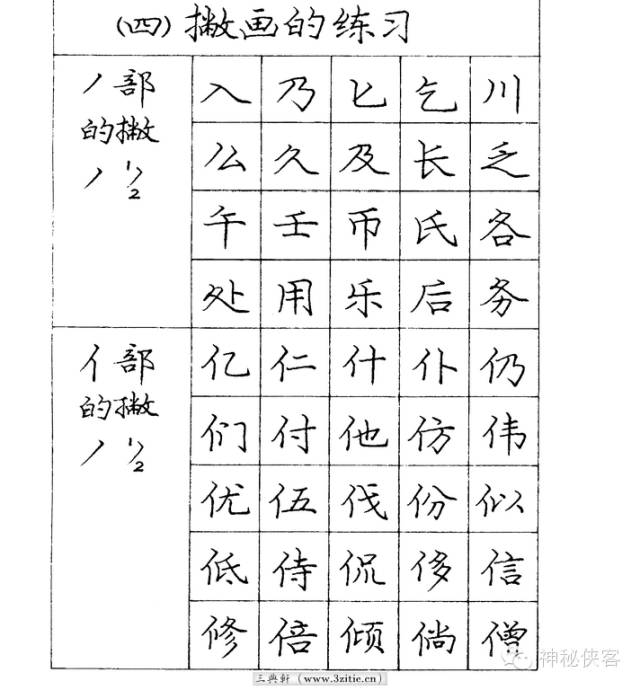 （四）撇画的练习
丿部的撇
丿 1/2
入 乃 匕 乞 川
么 久 及 长 乏
午 壬 币 氏 各
处 用 乐 后 务
亻部的撇
丿 1/2
亿 仁 什 仆 仍
们 付 他 仿 伟
优 伍 伐 份 似
低 侍 侃 侈 信
修 倍 倾 倘 僧
三典轩（www.3zitie.cn）
神秘侠客